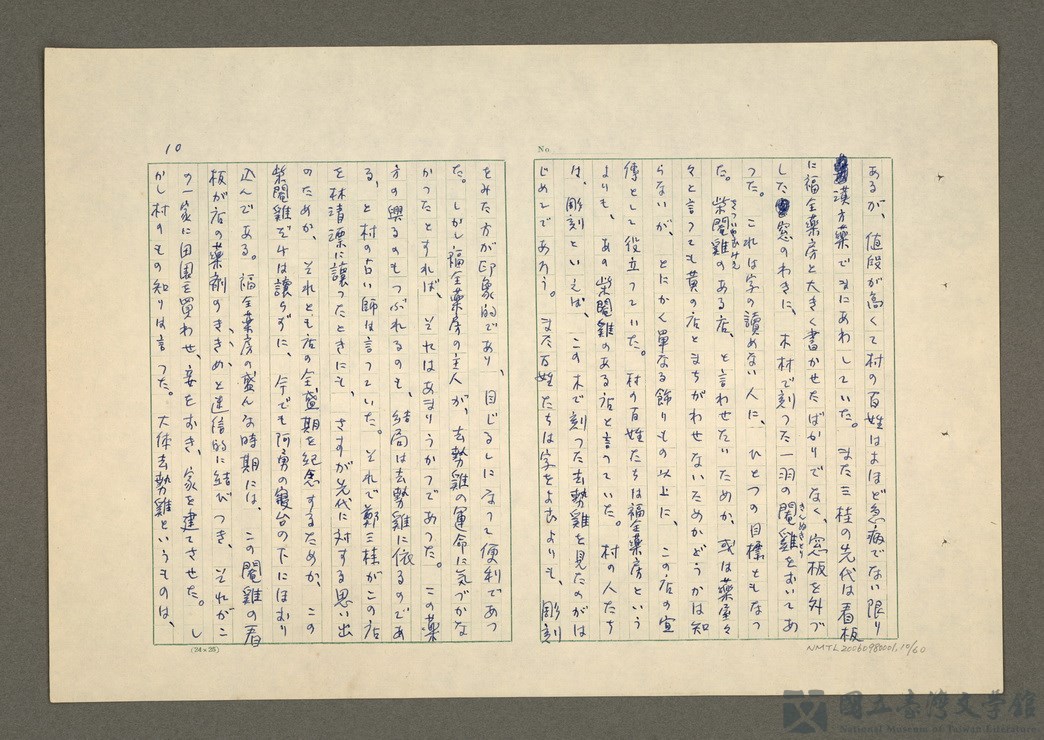 No
あるが、値段が高くて村の百姓はよほど急病でない限り
漢方薬でまにあわしていた。また三桂の先代は看板
に福全薬房と大きく書かせたばかりでなく、窓板を外づ
した窓のわきに、木材で刻った一羽の閹雞をおいてあ
さんぬきどり
った。これは字の讀めない人に、ひとつの目標ともなっ
た。柴閹雞のある店、と言わせたいためか、或は薬屋々
々と言っても黄の店とまちがわせないためかどうかは知
らないが、とにかく單なる飾りもの以上に、この店の宣
傳として役立っていた。村の百姓たちは福全薬房という
よりも、あの柴閹雞のある店と言っていた。村の人たち
は、彫刻といえば、この木で刻った去勢雞を見たのがは
じめてであろう。また百姓たちは字をよむよりも、彫刻
をみた方が印象的であり、目じるしになって便利であっ
た。しかし福全薬房の主人が、去勢雞の運命に気づかな
かったとすれば、それはあまりうかつであった。この薬
方の興るのもつぶれるのも、結局は去勢雞に依るのであ
る、と村の占い師は言っていた。それで鄭三桂がこの店
を林清漂に讓ったときにも、さすが先代に対する思い出
のためか、それとも店の全盛期を紀念するためか、この
柴閹雞だけは讀らずに、今でも阿勇の寝台の下にほおり
込んである。福全薬房の盛んな時期には、この閹雞の看
板が店の薬剤のききめと迷信的に結びつき、それがこ
の一家に田園を買わせ、妾をおき、家を建てさせた。し
かし村のもの知りは言った。大体去勢雞というものは、
10
(24×25)
NMTL20060980001.10/60
國立臺灣文学館
National Museum of Taiwan Literature